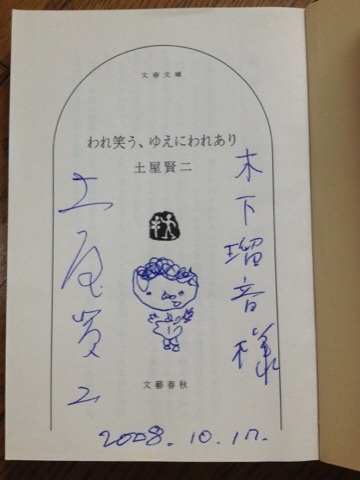 文春文庫
われ笑う、ゆえにわれあり
土屋賢二
木下瑠音様
土屋賢二
文藝春秋
2008.10.17.